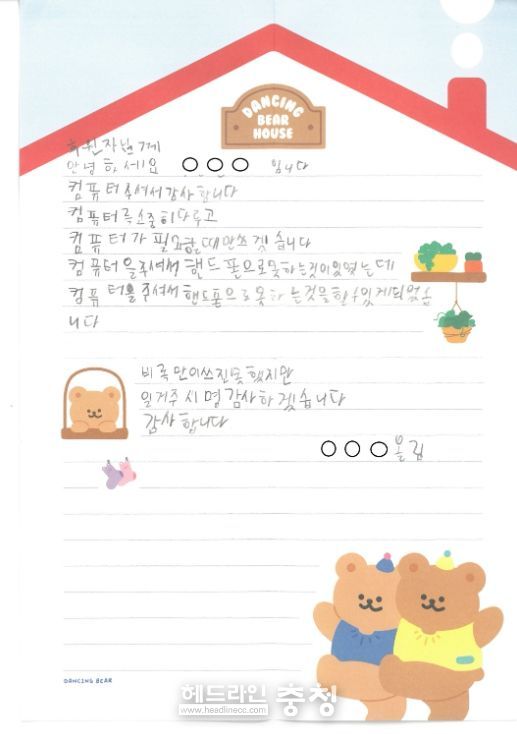 DANCING
BEAR
HOUSE
후원자님께
안녕하세요 ○○○ 입니다
컴퓨터주셔서감사합니다
컴퓨터를소중히다루고
컴퓨터가 필요할때만쓰겟습니다
컴퓨터을주셔서 핸드폰으로못하는것이있었는데
컴퓨터를 주셔서 핸드폰으로 못하는것을할수있게되었습
니다
비록 만이쓰진못했지만
일거주시명감사하겠습니다
감사합니다
○○○올림
DANCING BEAR
헤드라인충청
www.headlinecc.com